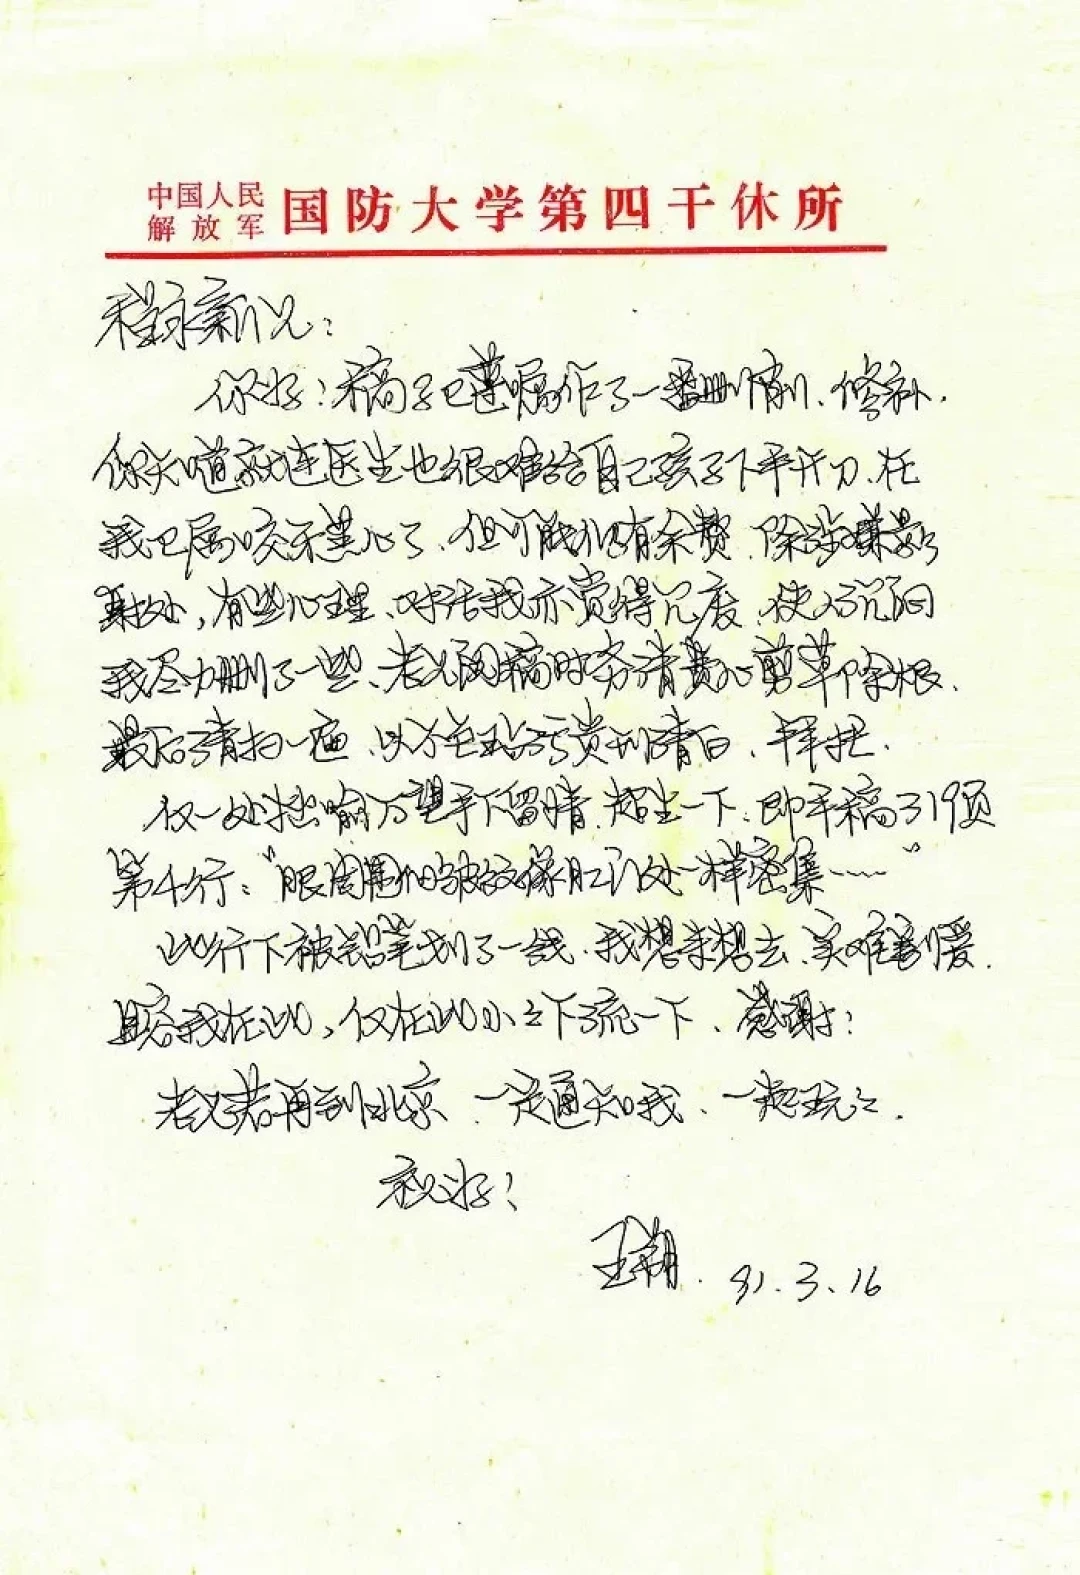 中国人民
解放军 国防大学第四干休所
程永新兄：
你好！稿子已遵嘱作了一番删削、修补，
你知道就连医生也很难给自己孩子下手开刀、在
我已属咬牙黑心了，但可能仍有余赘，除涉嫌影
射处，有些心理、对话我亦觉得冗废、使人沉闷
我尽力删了一些、老兄阅稿时务请费心剪草除根，
最后清扫一遍，以令至玷污贵刊清白，拜托。
仅一处拙喻万望手下留情，超生一下：即手稿319页
第4行：“眼周围的皱纹像肛门处一样密集……”
此行下被铅笔划了一线，我想来想去，实难割爱，
且容我在此，仅在此小小下流一下，感谢！
老兄若再到北京，一定通知我，一起玩玩。
祝好！
王朔 91.3.16